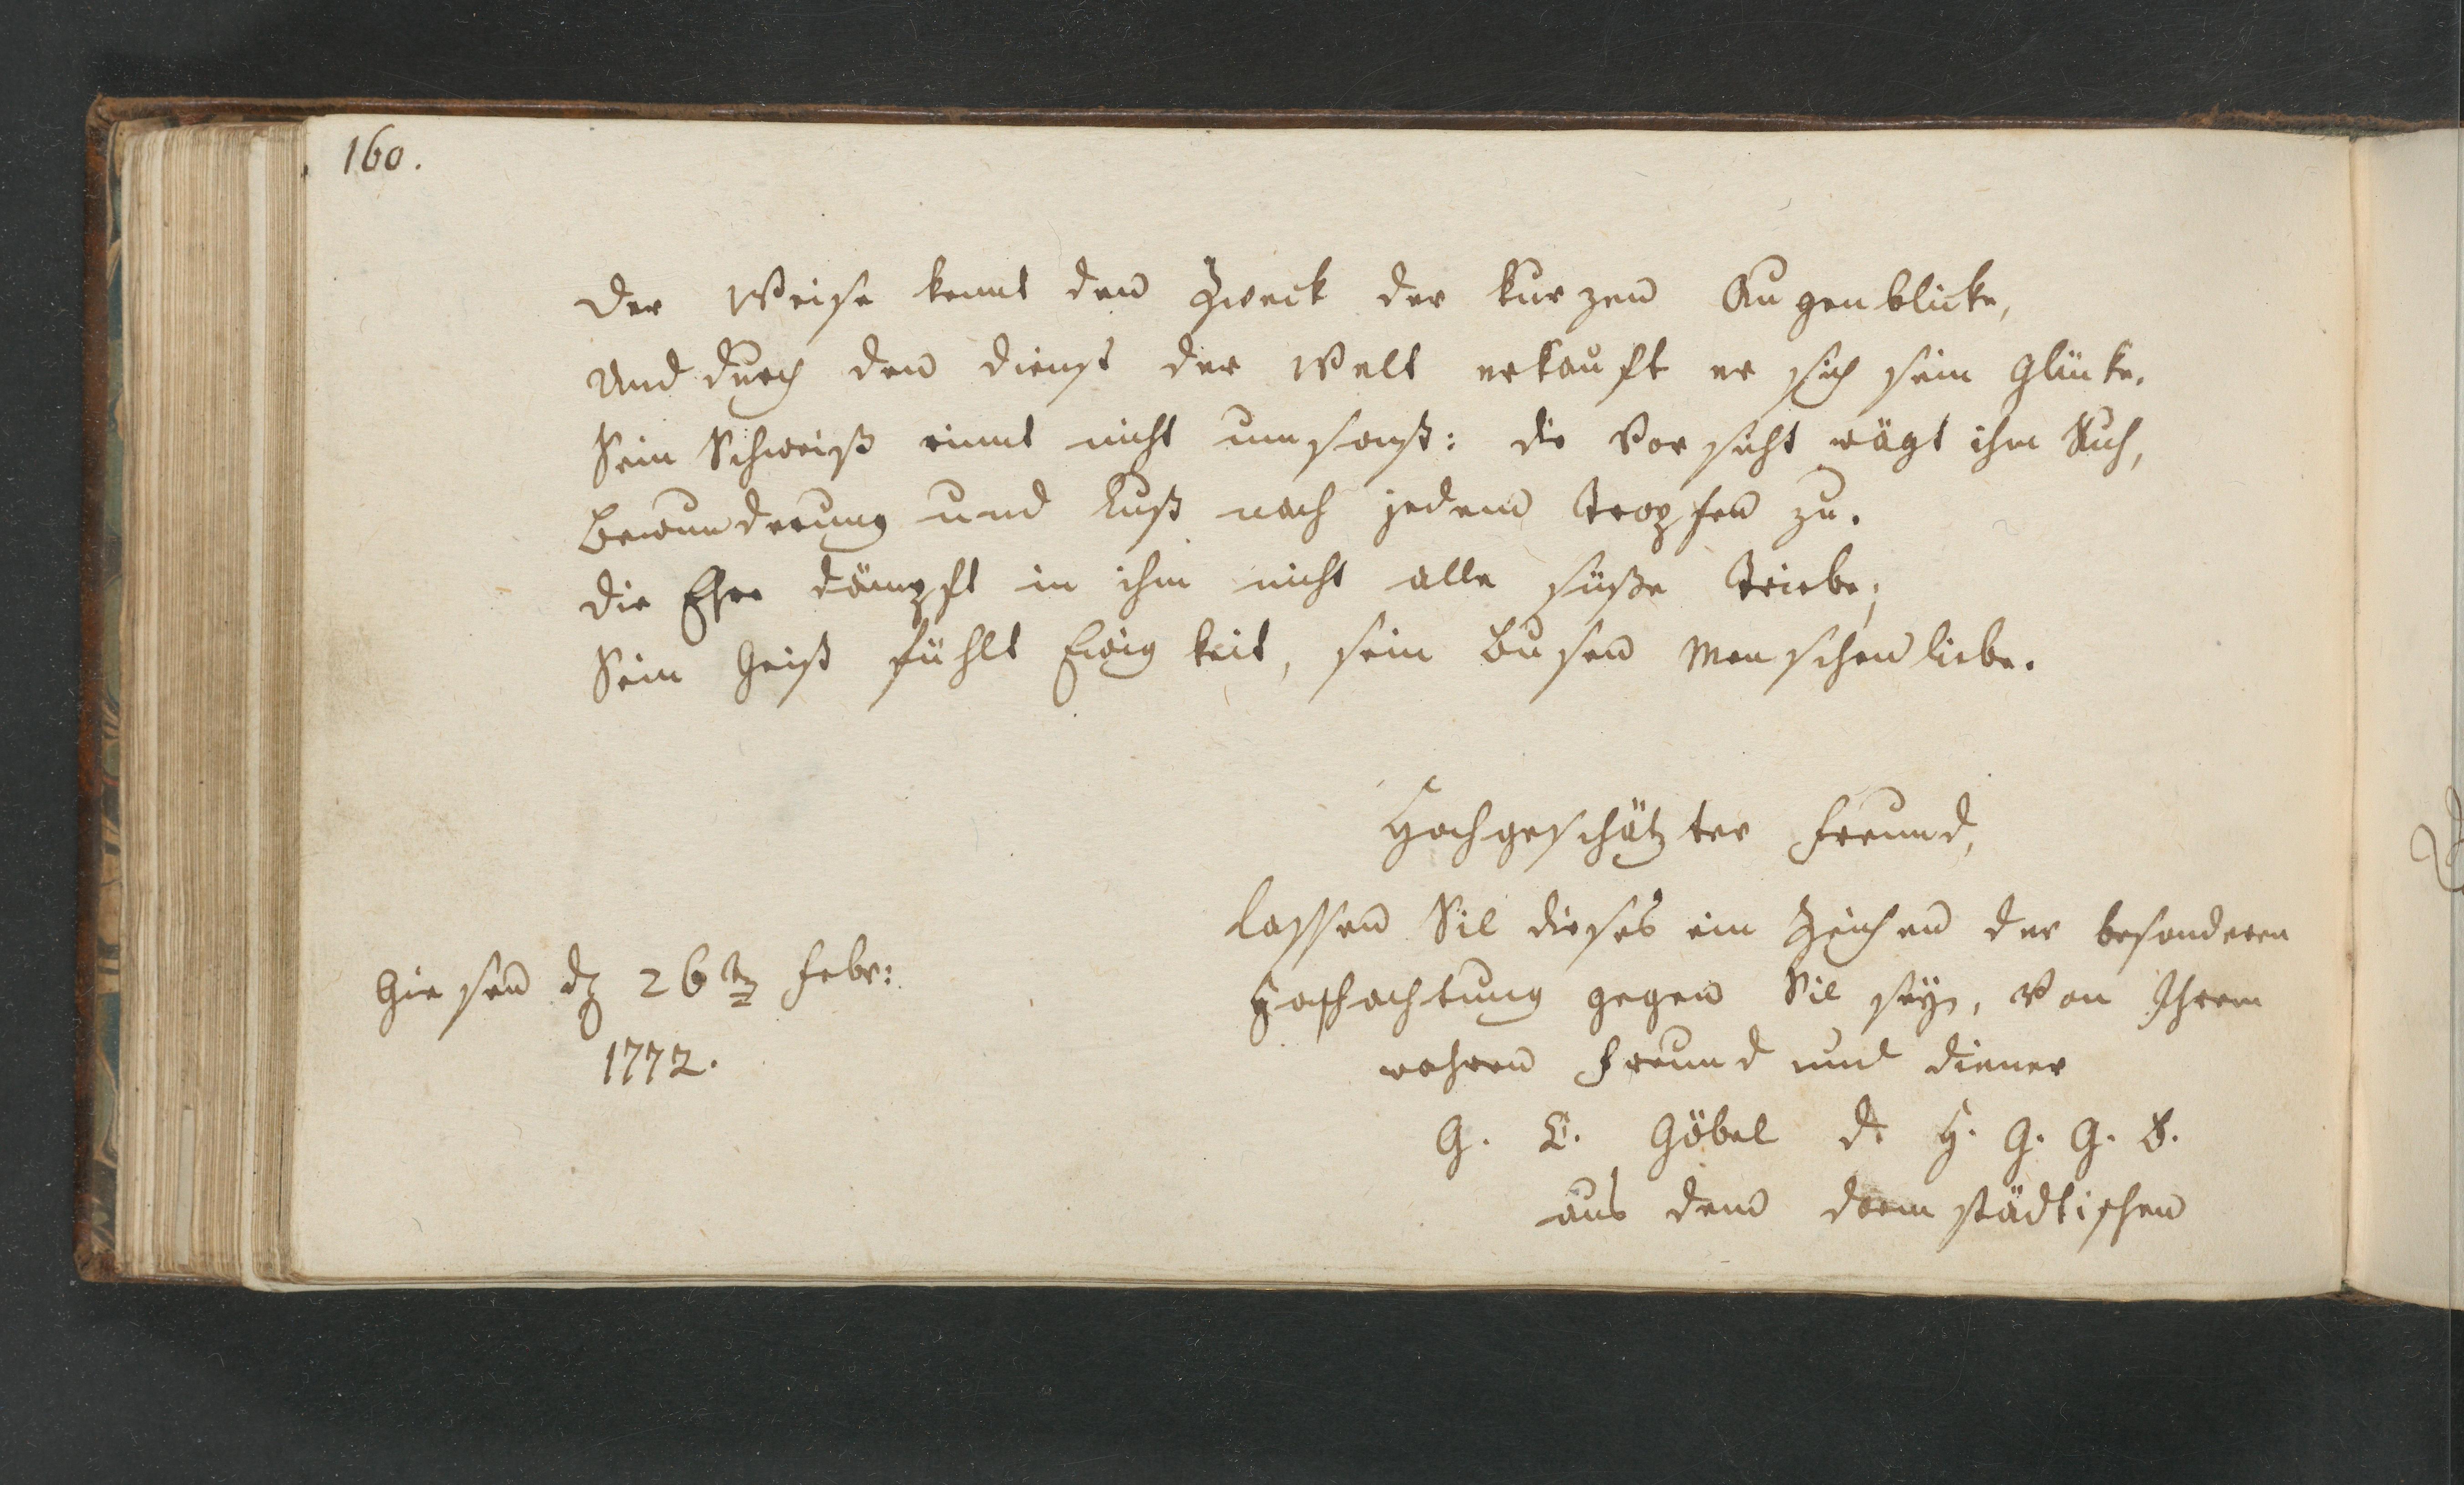 160.
Der Weise kennt den Zweck der kurzen Augenblicke,
Und durch den Dienst der Welt erkauft er sich sein Glücke.
Sein Schweiß rinnt nicht umsonst: die Vorsicht wägt ihm Ruh,
Bewunderung und Lust nach jedem Tropfen zu.
Die Ehre dämpft in ihm nicht alle süße Triebe;
Sein Geist fühlt Ewigkeit, sein Busen Menschenliebe.
Hochgeschätzter Freund,
Lassen Sie dieses ein Zeichen der besonderen
Hochachtung gegen Sie seyn, von Ihrem
wahren Freund und Diener
G. L. Göbel d. H. G. G. B.
aus dem Darmstädtischen
Giesen 26 Febr:
1772.